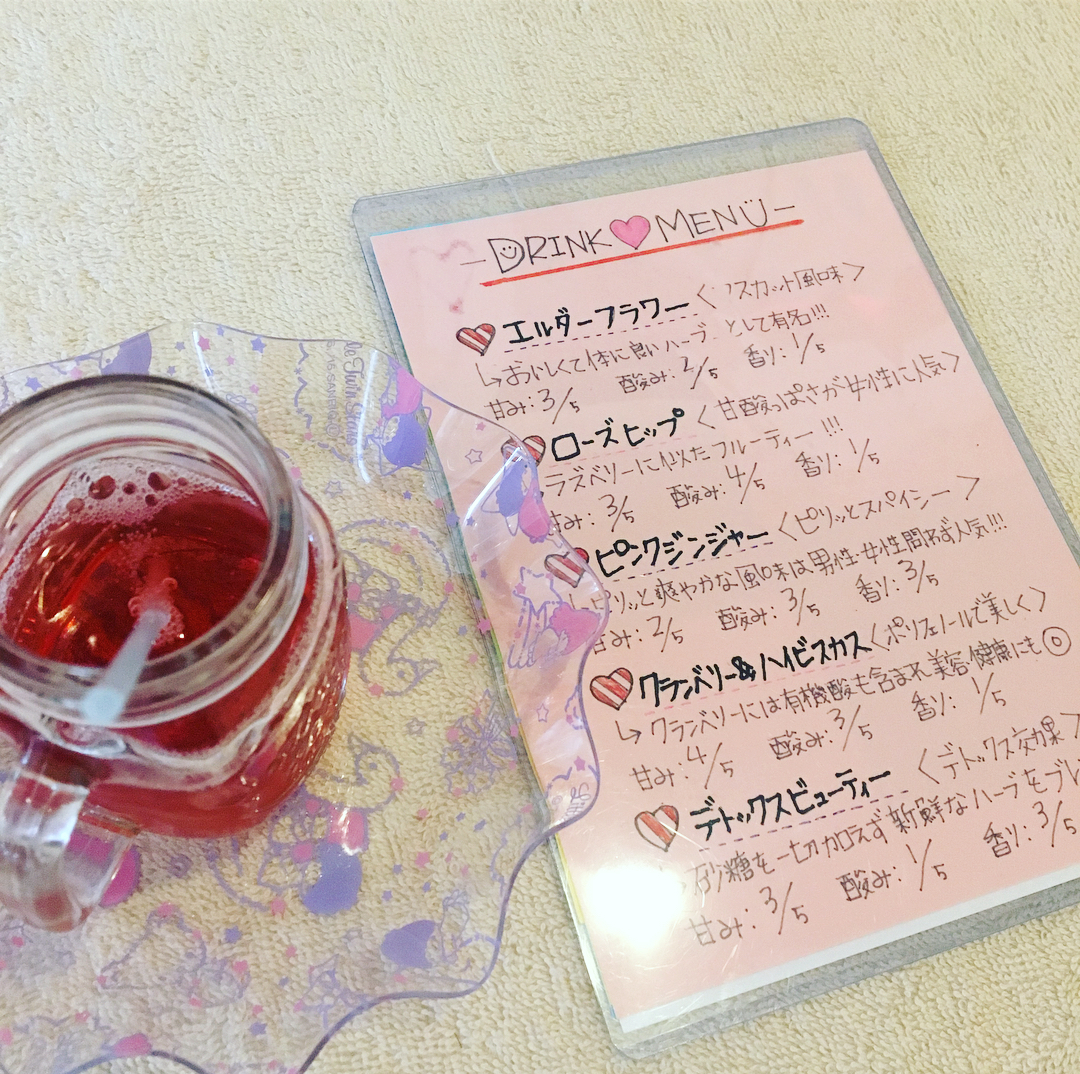 -DRINK♥MENU-
エルダーフラワー〈マスカット風味〉
↳おいしくて体に良いハーブとして有名!!!
甘み:3/5 酸み:2/5 香り:1/5
ローズヒップ〈甘酸っぱさが女性に人気〉
ラズベリーに似たフルーティー!!!
甘み:3/5 酸み:4/5 香り:1/5
ピンクジンジャー〈ピリッとスパイシー〉
ピリッと爽やかな風味は男性・女性問わず人気!!!
甘み:2/5 酸み:3/5 香り:3/5
クランベリー&ハイビスカス〈ポリフェノールで美しく〉
↳クランベリーには有機酸も含まれ美容・健康にも◎
甘み:4/5 酸み:3/5 香り:1/5
デトックスビューティー〈デトックス効果〉
砂糖を一切加えず新鮮なハーブをブレ
甘み:3/5 酸み:1/5 香り:3/5